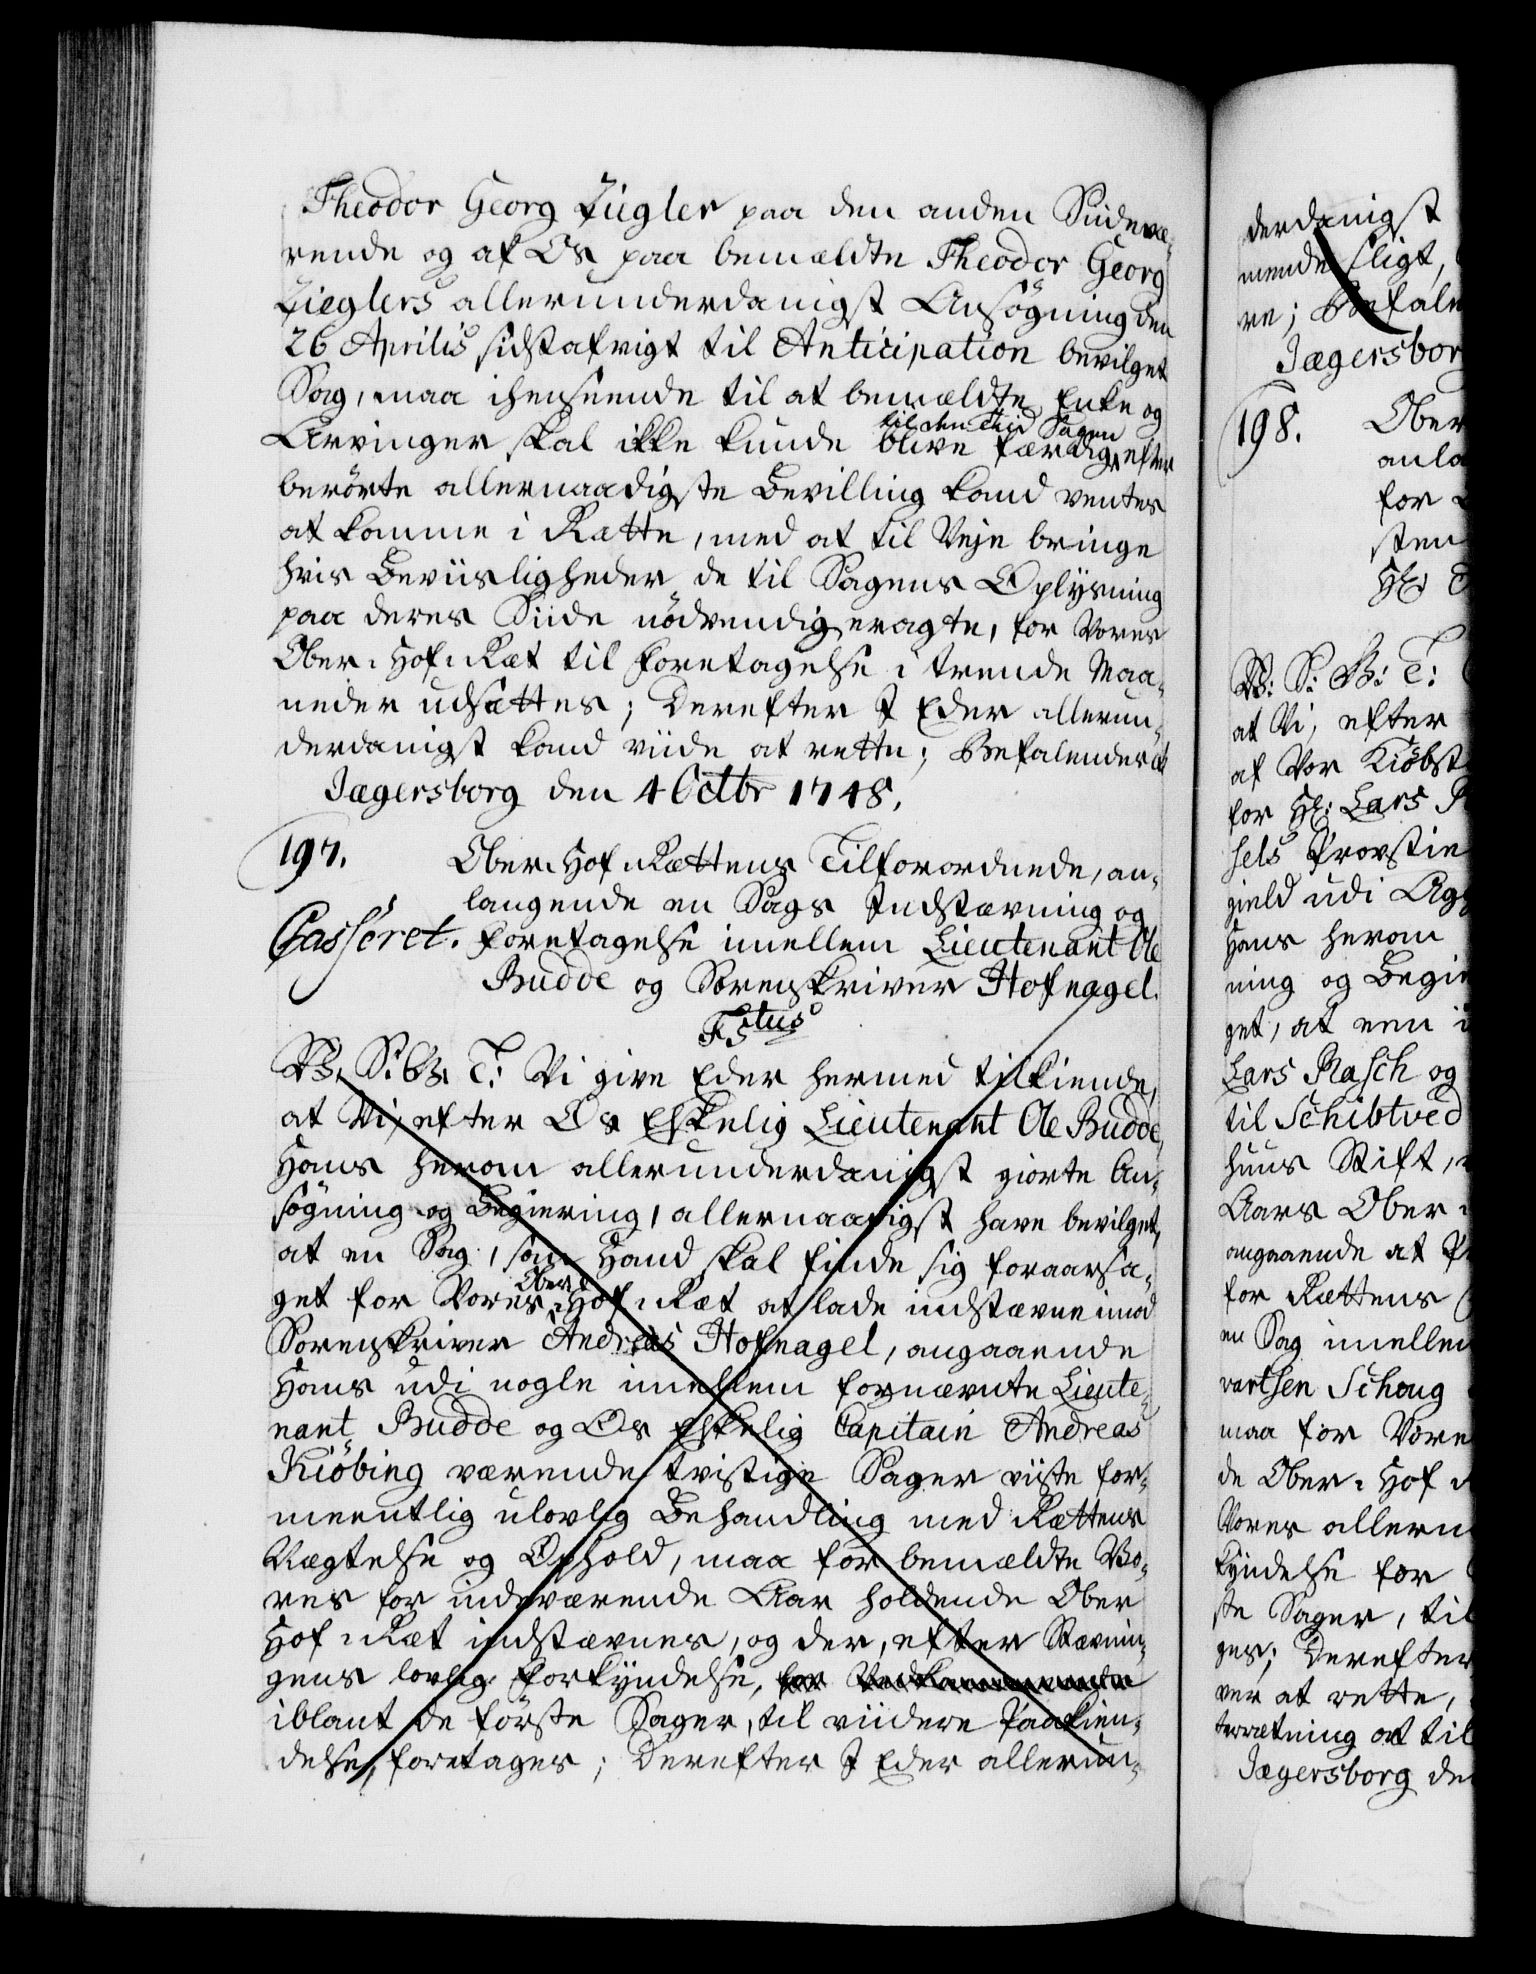 Theodor Georg Ziegler paa den anden Siide væ-
rende og af Os paa bemældte Theodor Georg
Zieglers allerunderdanigst Ansøgning den
26 Aprilis sidstafvigt til Anticipation bevilget
Sag, maa ihenseende til at bemældte Enke og
Arvinger skal ikke kunde blive færdig, til den Tiid Sagen efter
berørte allernaadigste Bevilling kand ventes
at komme i Rætte, med at til Veje bringe
hvis Beviisligheder de til Sagens Oplysning
paa deres Siide nødvendig eragte, for Vores
Ober-Hof-Ræt til Foretagelse i trende Maa-
neder udsættes; Derefter I Eder allerun-
derdanigst kand viide at rette; Befalendes etc
Jægersborg den 4 Octbr 1748.
197. Ober-Hof-Rættens Tilforordnede, an-
langende en Sags Indstævning og
Casseret. Foretagelse imellem Lieutenant Ole
Budde og Sorenskriver Hofnagel.
V. S. G. T. Vi give Eder hermed tilkiende,
at Vi, efter Os Elskelig Lieutenant Ole Budde,
Hans herom allerunderdanigst giorte An-
søgning og Begiering, allernaadigst have bevilget,
at en Sag, som Hand skal finde sig foraarsa-
get for Vores Ober-Hof-Ræt at lade indstævne imod
Sorenskriver Andreas Hofnagel, angaaende
Hans udi nogle imellem fornævnte Lieute-
nant Budde og Os Elskelig Capitain Andreas
Kiøbing værende tvistige Sager viiste for-
meentlig ulovlig Behandling med Rættens
Nægtelse og Ophold, maa for bemældte Vo-
res for indeværende Aar holdende Ober
Hof-Ræt indstævnes, og der, efter Stævnin-
gens lovlig Forkyndelse, for Vedkommende
iblant de første Sager, til viidere Paakien-
delse, foretages; Derefter I Eder allerun-
derdanigst
mende sligt,
re; Befale
Jægersbor
198. Ober
anla
for
sten
Hr:
V: S: G: T:
at Vi, efter
af Vor Kiøbst
for Hr: Lars
sels Provstie
gield udi Agg
Hans herom
ning og Begie
get, at een i
Lars Rasch og
til Schibtved
huus Stift,
Aars Ober-
angaaende at
for Rættens
en Sag imellem
vartsen Schoug
maa for Vore
de Ober-Hof-
Vores allern
kyndelse for
ste Sager, til
ges; Derefter
ver at rette,
terrætning at til
Jægersborg de